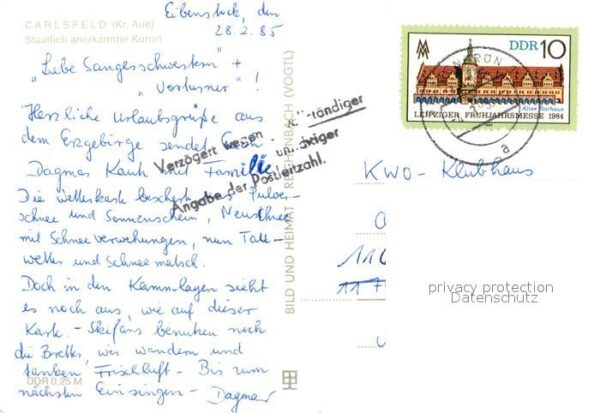 Eibenstock, den
28.2.85
CARLSFELD (Kr. Aue)
Staatlich anerkannter Kurort
"Liebe Sangesschwestern" +
"Vorturner"!
Herzliche Urlaubsgrüße aus
dem Erzgebirge sendet Euch
Dagmar Kauk mit Familie
Die Wetterkarte bescherte uns Pulver-
schnee und Sonnenschein, Neuschnee
mit Schneeverwehungen, nun Tau-
wetter und Schneematsch.
Doch in den Kammlagen sieht
es noch aus, wie auf dieser
Karte. - Skifans benutzen noch
die Bretter, wir wandern und
tanken Frischluft - Bis zum
nächsten Einsingen - Dagmar
DDR 0,25 M
Verzögert wegen
Angabe der Postleitzahl.
BILD UND HEIMAT REICHENBACH (VOGTL)
DDR 10
Altes Rathaus
LEIPZIGER FRÜHJAHRSMESSE 1984
a
KWO - Klubhaus
110
11
privacy protection
Datenschutz